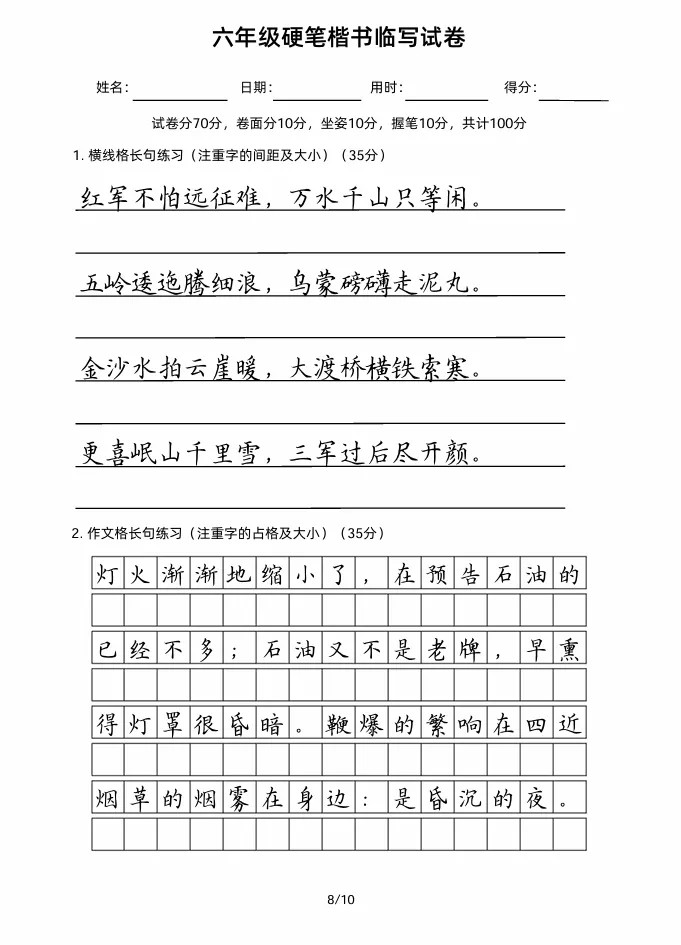 六年级硬笔楷书临写试卷
姓名： 日期： 用时： 得分：
试卷分70分，卷面分10分，坐姿10分，握笔10分，共计100分
1. 横线格长句练习（注重字的间距及大小）（35分）
红军不怕远征难，万水千山只等闲。
五岭逶迤腾细浪，乌蒙磅礴走泥丸。
金沙水拍云崖暖，大渡桥横铁索寒。
更喜岷山千里雪，三军过后尽开颜。
2. 作文格长句练习（注重字的占格及大小）（35分）
灯火渐渐地缩小了，在预告石油的
已经不多；石油又不是老牌，早熏
得灯罩很昏暗。鞭爆的繁响在四近
烟草的烟雾在身边：是昏沉的夜。
8/10